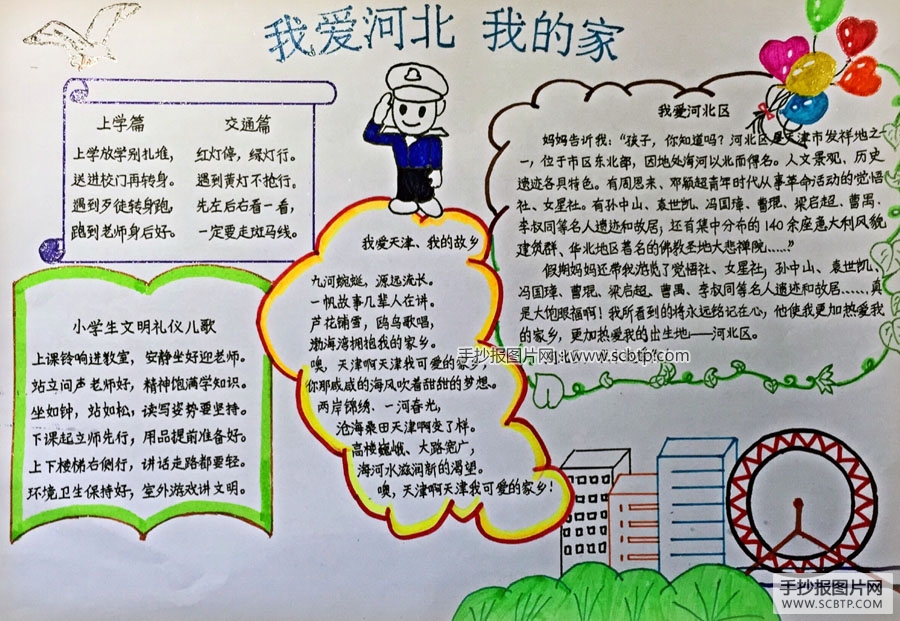 我爱河北 我的家
上学篇
上学放学别扎堆，
送进校门再转身。
遇到歹徒转身跑，
跑到老师身后好。
交通篇
红灯停，绿灯行。
遇到黄灯不抢行。
先左后右看一看，
一定要走斑马线。
小学生文明礼仪儿歌
上课铃响进教室，安静坐好迎老师。
站立问声老师好，精神饱满学知识。
坐如钟，站如松，读写姿势要坚持。
下课起立师先行，用品提前准备好。
上下楼梯右侧行，讲话走路都要轻。
环境卫生保持好，室外游戏讲文明。
我爱天津、我的故乡
九河蜿蜒，源远流长。
一帆故事几辈人在讲。
芦花铺雪，鸥鸟歌唱，
渤海湾拥抱我的家乡。
噢，天津啊天津我可爱的家
你那咸咸的海风吹着甜甜的梦想。
两岸锦绣．一河春光，
沧海桑田天津啊变了样。
高楼巍峨、大路宽广，
海河水滋润新的渴望。
噢，天津啊天津我可爱的家乡！
我爱河北区
妈妈告诉我：“孩子，你知道吗？河北区是天津市发祥地之
一，位于市区东北部，因地处海河以北而得名。人文景观、历史
遗迹各具特色。有周恩来、邓颖超青年时代从事革命活动的觉悟
社、女星社。有孙中山、袁世凯、冯国璋、曹琨、梁启超、曹禺、
李叔同等名人遗迹和故居；还有集中分布的140余座意大利风貌
建筑群、华北地区著名的佛教圣地大悲禅院……”
假期妈妈还带我游览了觉悟社、女星社，孙中山、袁世凯、
冯国璋、曹琨、梁启超、曹禺、李叔同等名人遗迹和故居……，真
是大饱眼福啊！我所看到的将永远铭记在心，他使我更加热爱我
的家乡，更加热爱我的出生地——河北区。
手抄报图片网：www.scbtp.com
手抄报图片网
WWW.SCBTP.COM